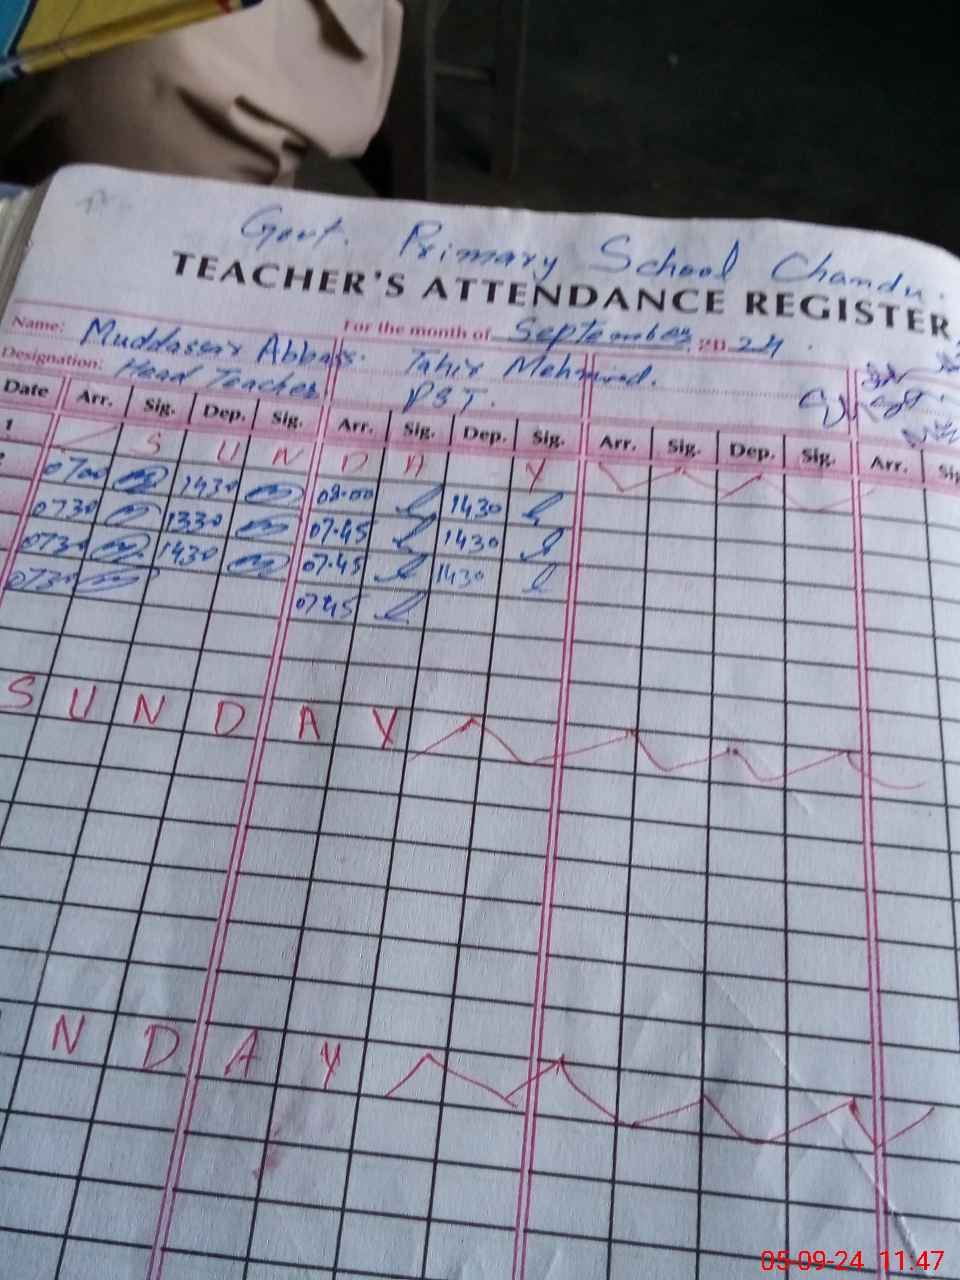 Govt. Primary School Chandu.
TEACHER'S ATTENDANCE REGISTER
Name: Muddassar Abbas. For the month of September, 2024.
Designation: Head Teacher Tahir Mehmood.
PST.
Date Arr. Sig. Dep. Sig. Arr. Sig. Dep. Sig. Arr. Sig. Dep. Sig. Arr.
1 S U N D A Y
0700 1430 08:00 1430
0730 1330 07:45 1430
0730 1430 07:45 1430
0730 07:45
S U N D A Y
N D A Y
05-09-24 11:47